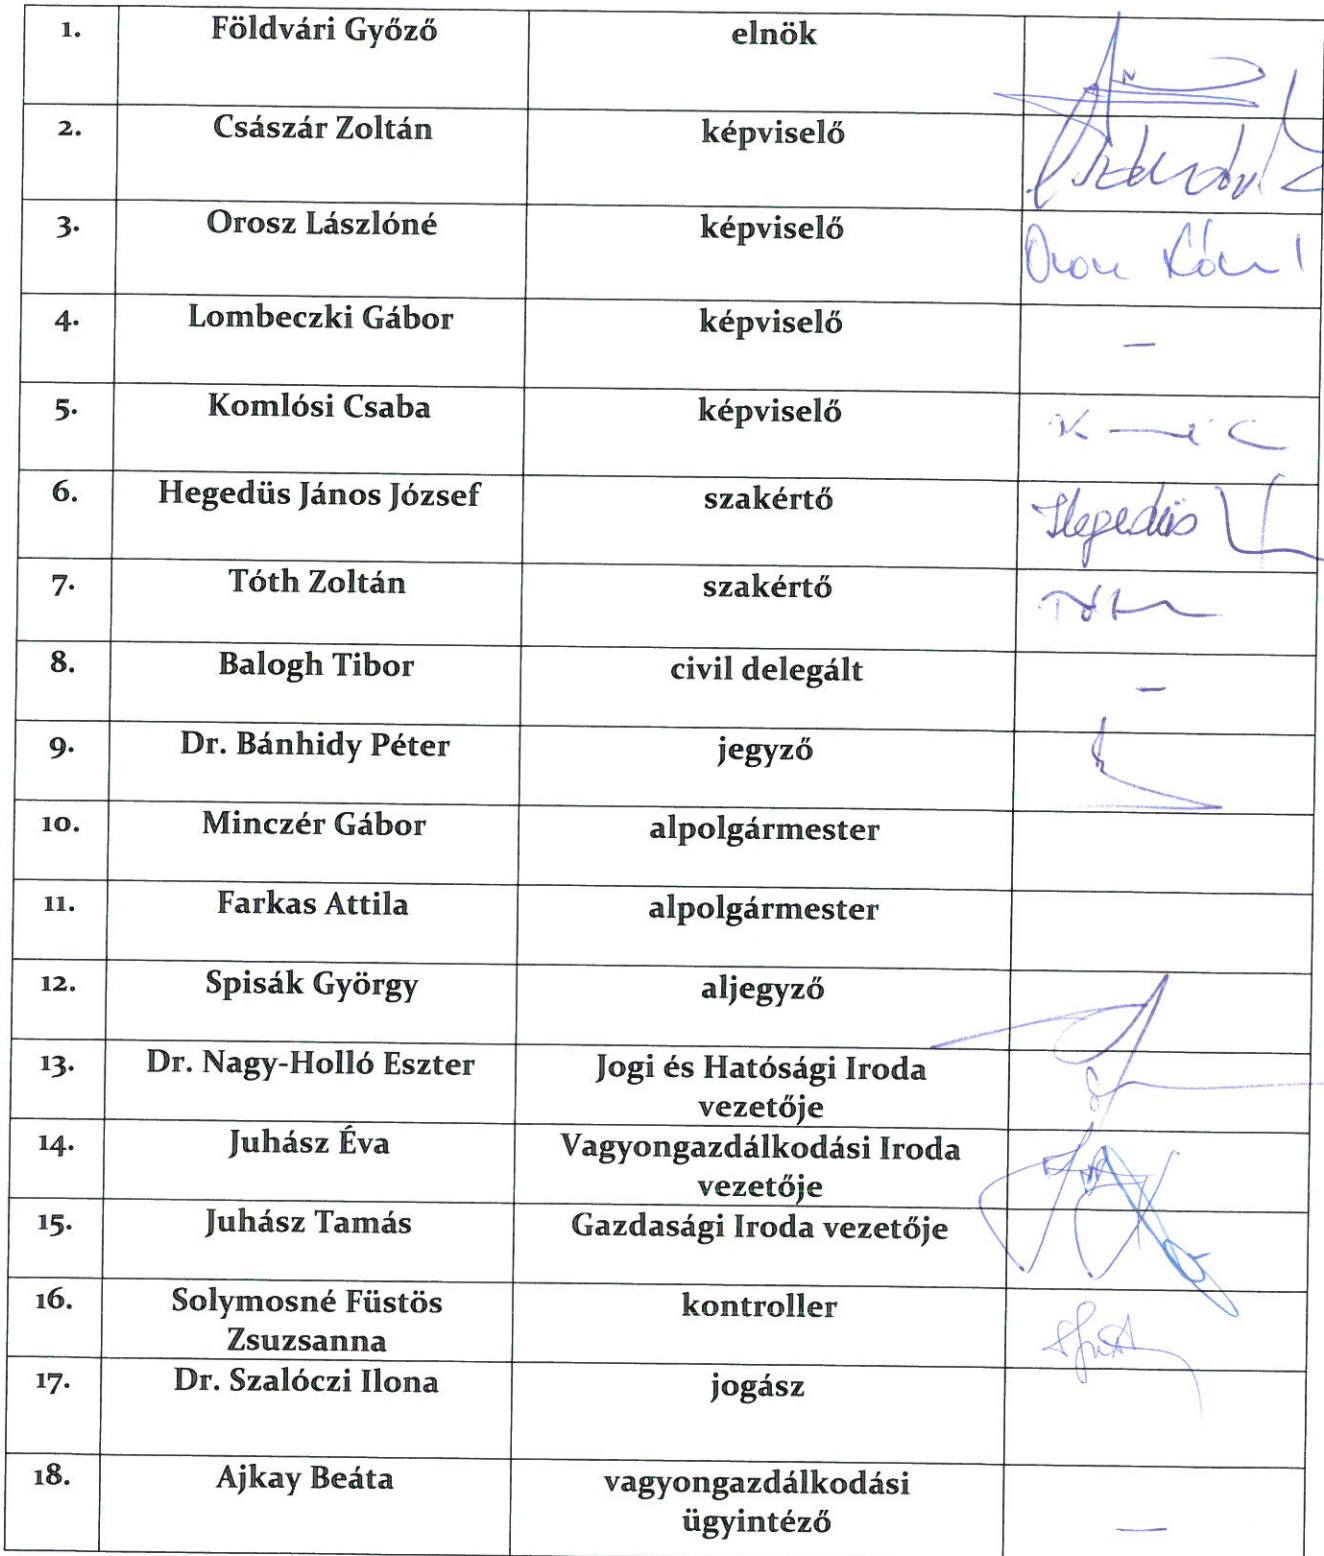 1. Földvári Győző elnök
2. Császár Zoltán képviselő
3. Orosz Lászlóné képviselő
4. Lombeczki Gábor képviselő –
5. Komlósi Csaba képviselő
6. Hegedüs János József szakértő Hegedüs
7. Tóth Zoltán szakértő
8. Balogh Tibor civil delegált –
9. Dr. Bánhidy Péter jegyző
10. Minczér Gábor alpolgármester
11. Farkas Attila alpolgármester
12. Spisák György aljegyző
13. Dr. Nagy-Holló Eszter Jogi és Hatósági Iroda
vezetője
14. Juhász Éva Vagyongazdálkodási Iroda
vezetője
15. Juhász Tamás Gazdasági Iroda vezetője
16. Solymosné Füstös kontroller
Zsuzsanna
17. Dr. Szalóczi Ilona jogász
18. Ajkay Beáta vagyongazdálkodási
ügyintéző –